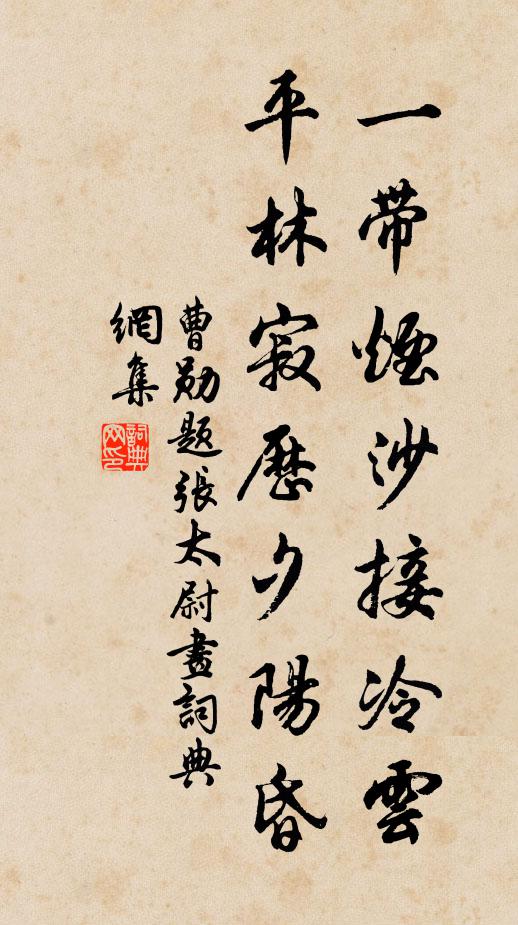 一帶煙沙接冷雲
平林寂歷夕陽昏
曹勛題張太尉畫詞典
網集
詞典
网印